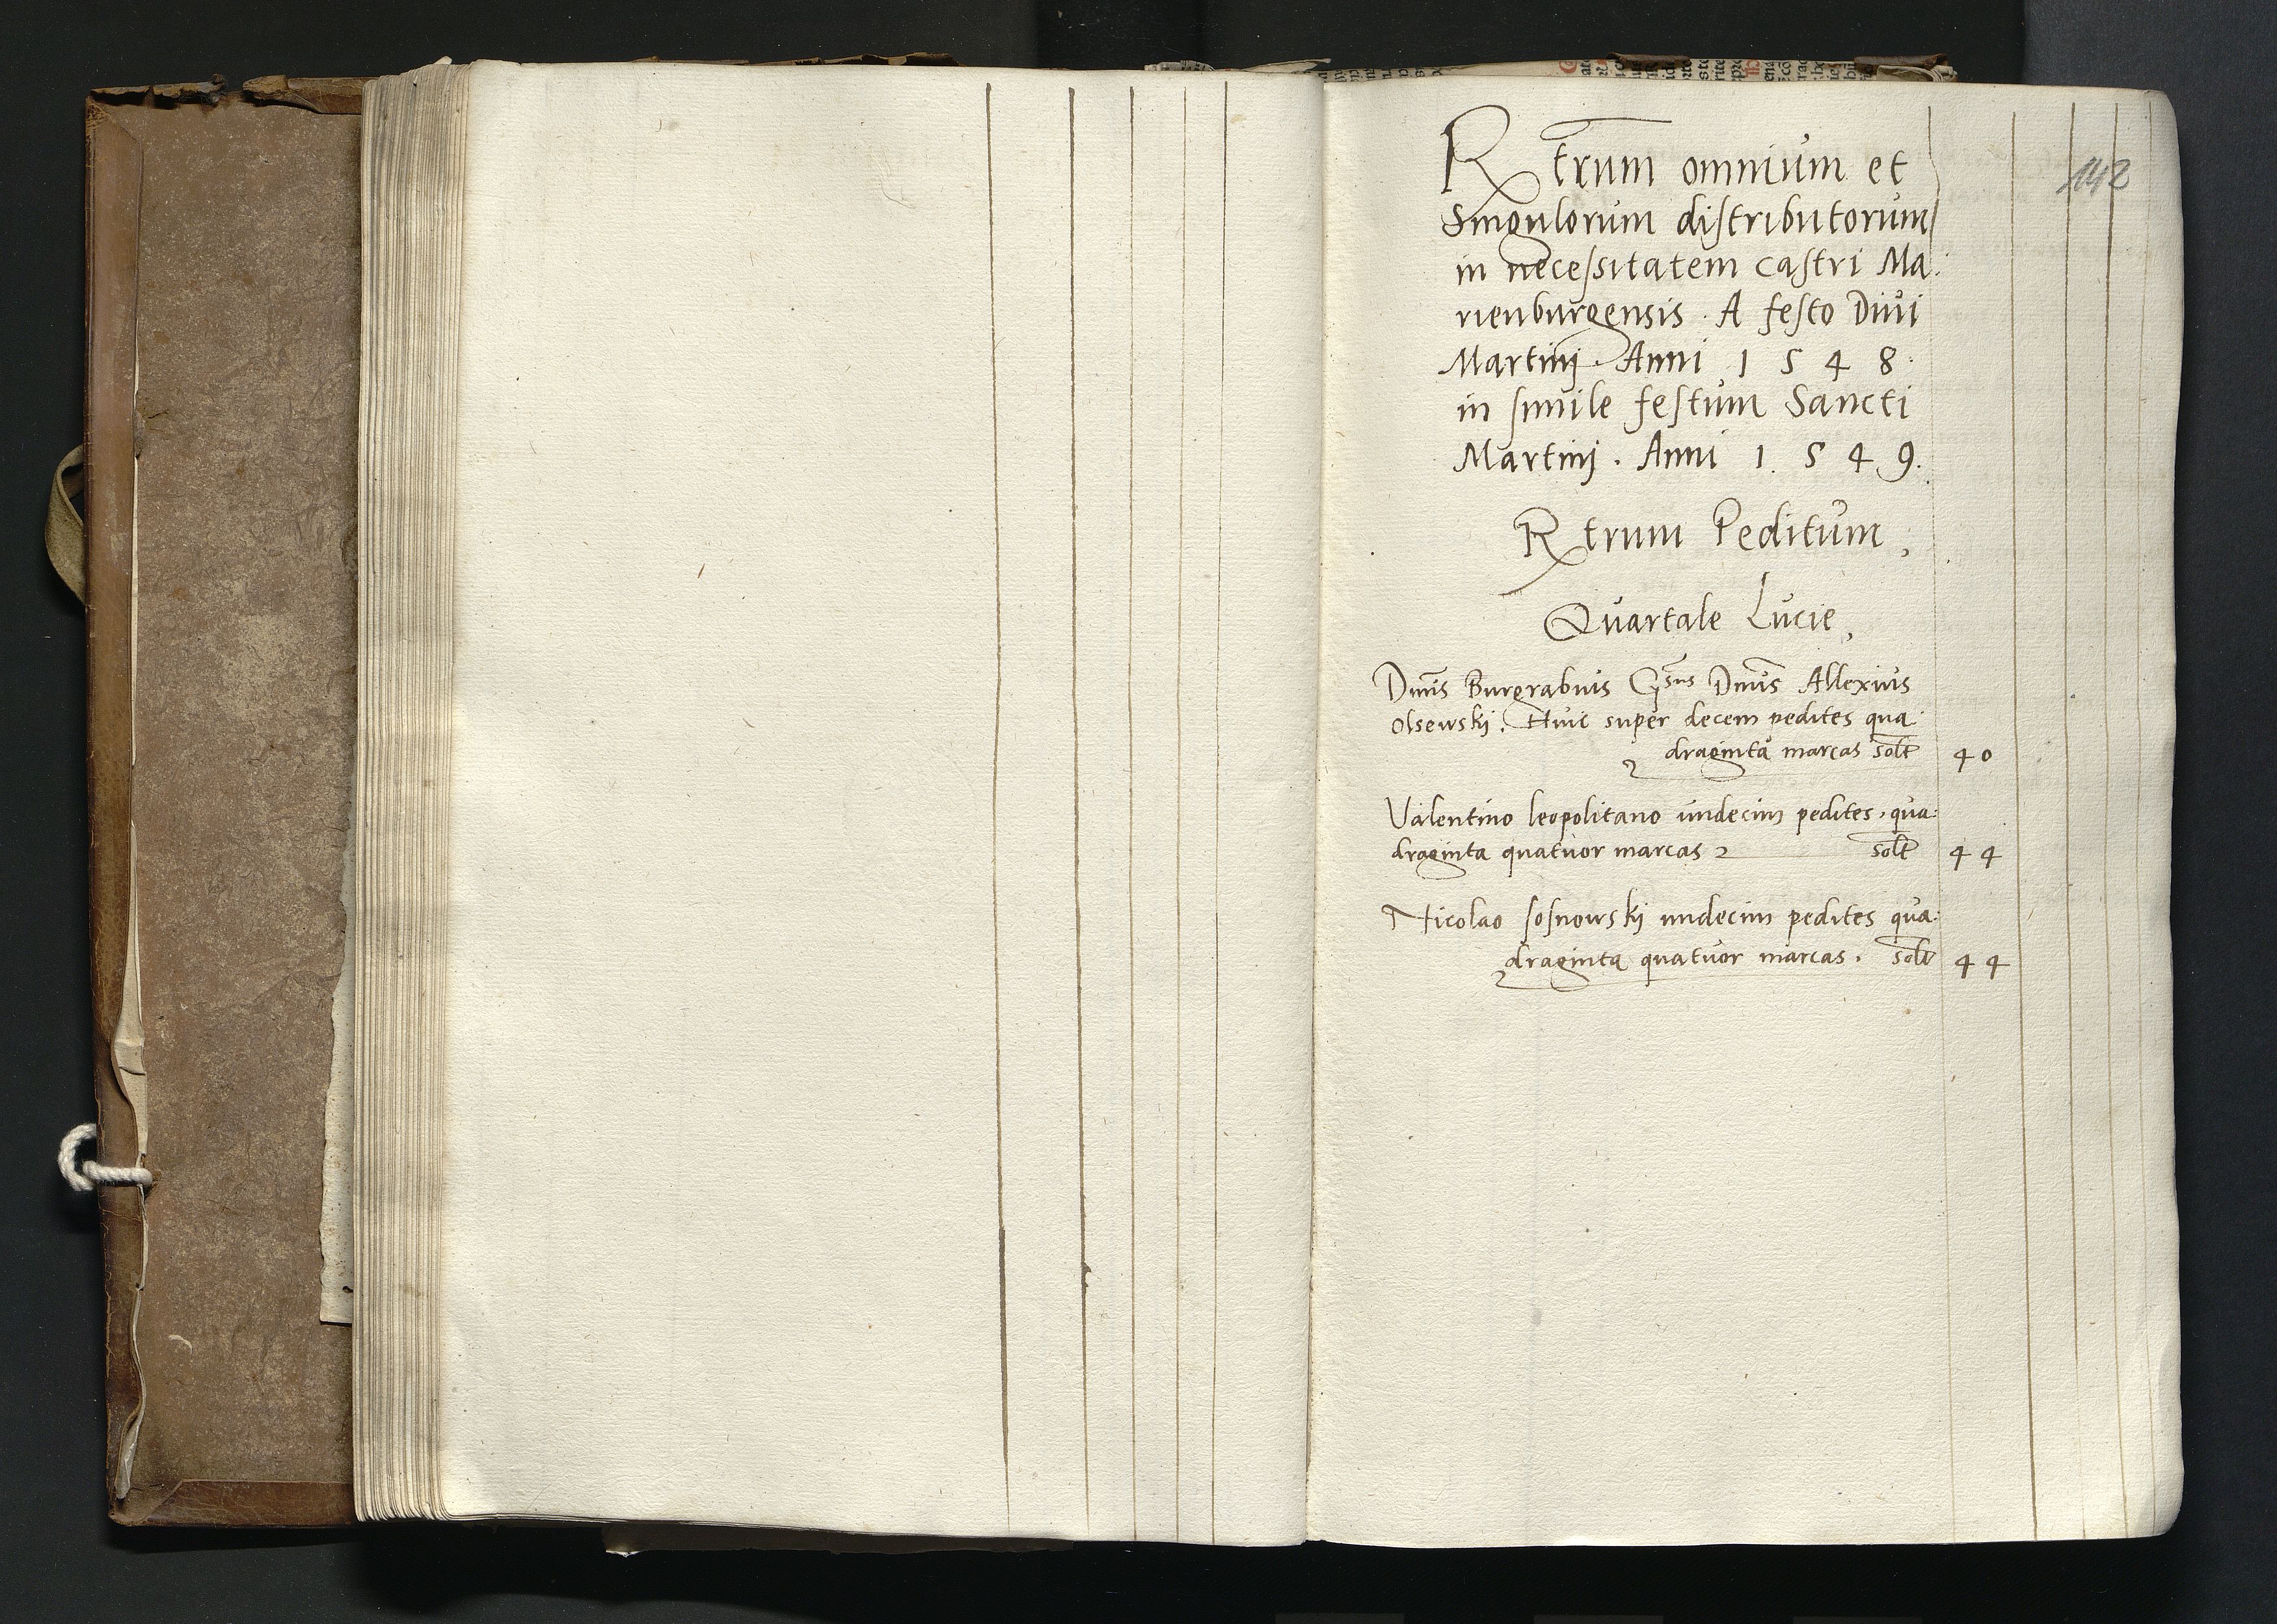 142
Rtrum omnium et
Singulorum distributorum
in necessitatem castri Ma:
rienburgensis. A festo Divi
Martinj. Anni 1548.
in simile festum Sancti
Martinj. Anni 1549.
Rtrum Peditum,
Quartale Lucie,
Dnus Burgrabius Gsus Dnus Allexius
olsewskj. Huic super decem pedites qua:
draginta marcas solt 40
Valentino leopolitano undecim pedites, qua:
draginta quatuor marcas solt 44
Nicolao sosnowskj undecim pedites qua:
draginta quatuor marcas. solt 44